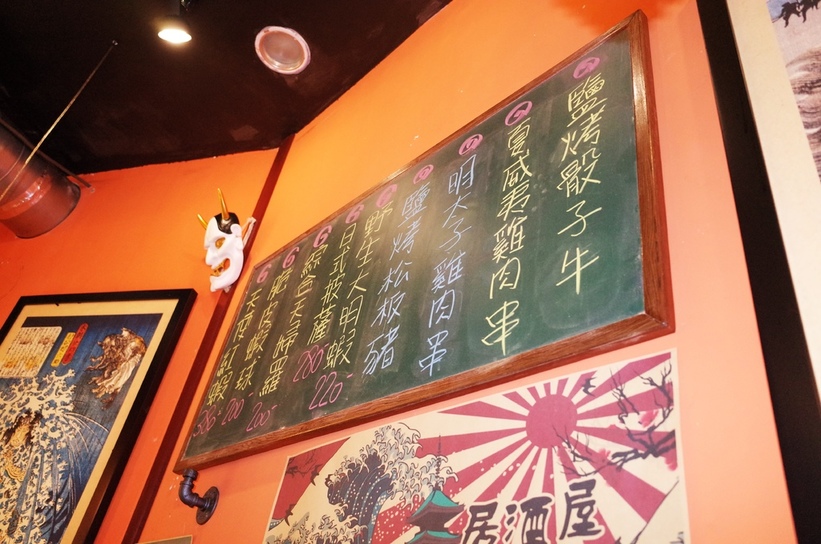 鹽烤骰子牛
夏威夷雞肉串
明太子雞肉串
鹽烤松板豬
野生大明蝦
日式披薩 220
綜合天婦羅 280
脆皮蝦球 200
天使紅蝦 200
居酒屋